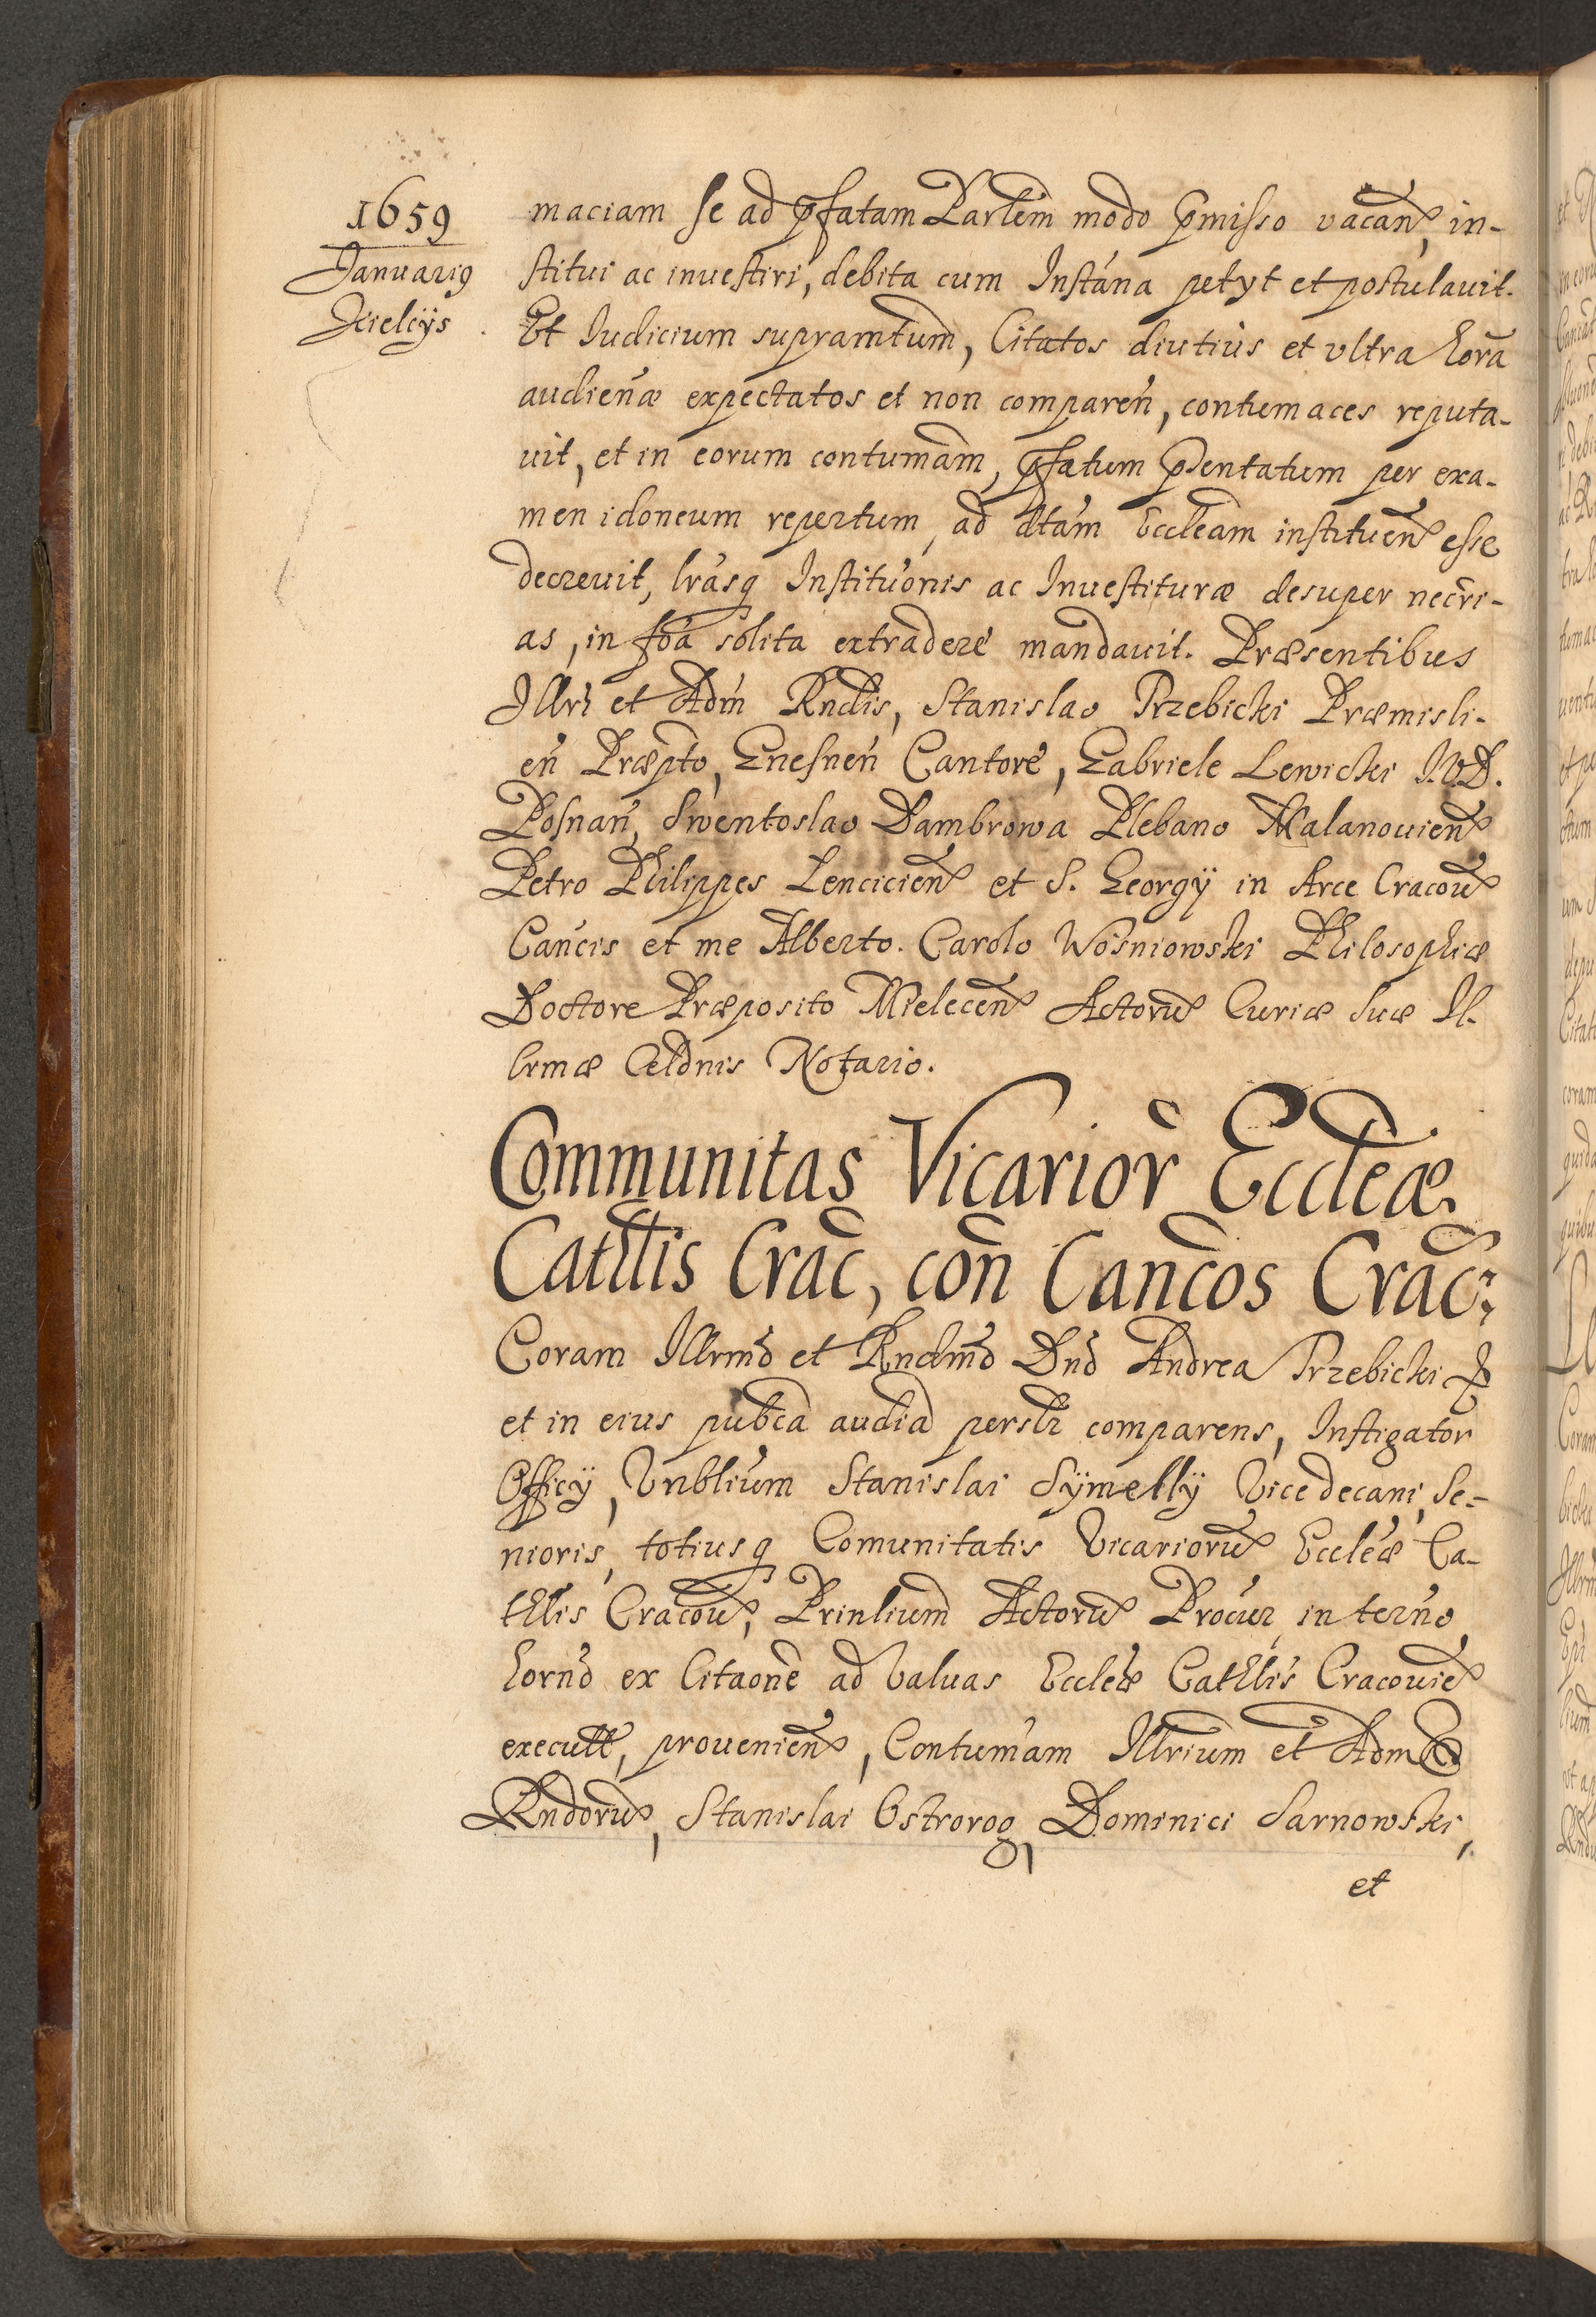 1659
Januarig
Kielcÿs.
maciam se ad pfatam Partem modo pmisso vacañ, in-
stitui ac inuestiri, debita cum Instána petyt et postulauit.
Et Iudicium supramtum, Citatos diutius et vltra horã
audienæ expectatos et non compareñ, contumaces reputa-
uit, et in eorum contumãm, pfatum psentatum per exa-
men idoneum repertum, ad dtam Eccleam instituen esse
decreuit, lrasq Instituonis ac Inuestituræ desuper necri-
as, in foa solita extradere mandauit. Præsentibus
Illri et Adm Rndis, Stanislao Trzebicki Præmisli-
eñ Præpto, Gnesneñ Cantore, Gabriele Lewicki I.V.D.
Posnañ, Swentoslao Dambrowa Plebano Malanouien
Petro Philippes Lencicien et S. Georgÿ in Arce Cracou
Cancis et me Alberto. Carolo Wosniowski Philosophiæ
Doctore Præposito Mielecen Actoru Curiæ Suæ Il-
lrmæ Celdnis Notario.
Communitas Vicarior Eccleæ
Cathlis Crac, con Cancos Crac;
Coram Illrmo et Rndmo Dno Andrea Trzebicki
et in eius pubca audia perslr comparens, Instigator
Officÿ, Vnblium Stanislai Sÿmellÿ Vicedecani, Se-
nioris, totiusq Comunitatis Vicarioru Eccleæ Ca-
thlis Cracou, Prinlium Actoru Procur in terno
horno ex Citaone ad Valuas Eccleæ Cathlis Cracouie
executt, prouenien, Contumam Illrium et Adm
Rndoru, Stanislai Ostrorog, Dominici Sarnowski,
et